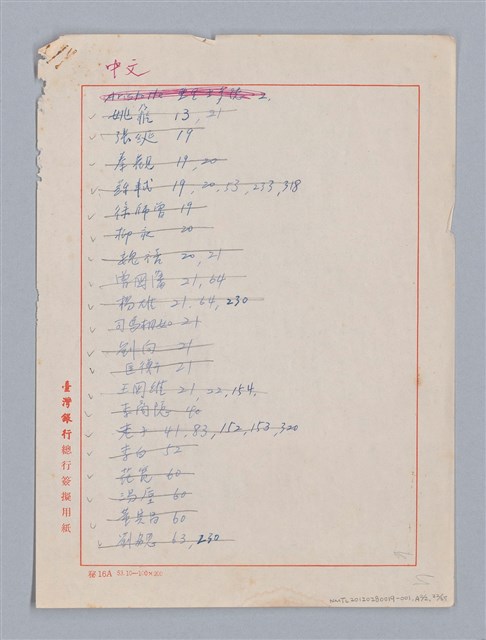 中文
姚鼐 13, 21
張綖 19
秦觀 19, 20
蘇軾 19, 20, 53, 253, 318
徐師曾 19
柳永 20
魏禧 20, 21
曾國藩 21, 64
楊雄 21, 64, 230
司馬相如 21
劉向 21
匡衡 21
王國維 21, 22, 154,
李商隱 40
老子 41, 83, 152, 153, 320
李白 52
范寬 60
湯垕 60
董其昌 60
劉勰 63, 230
臺灣銀行總行簽擬用紙
秘16A